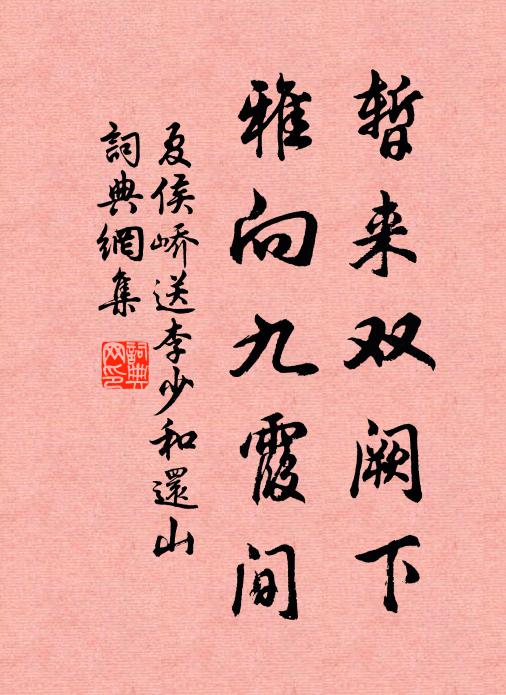 暂来双阙下
雅向九霞间
夏侯峤送李少和還山
詞典網集
詞典网印